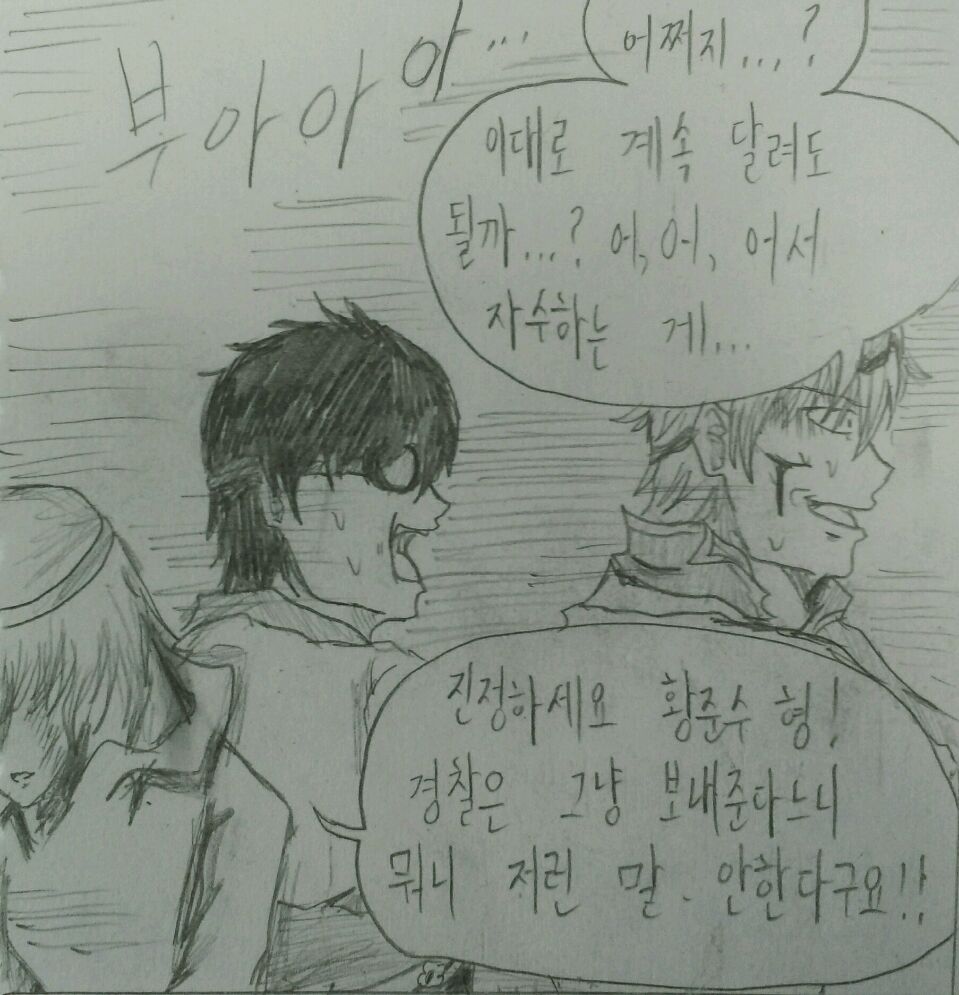 부아아아...
어쩌지...?
이대로 계속 달려도
될까...? 어,어, 어서
자수하는 게...
진정하세요 황준수 형!
경찰은 그냥 보내준다느니
뭐니 저런 말. 안한다구요!!